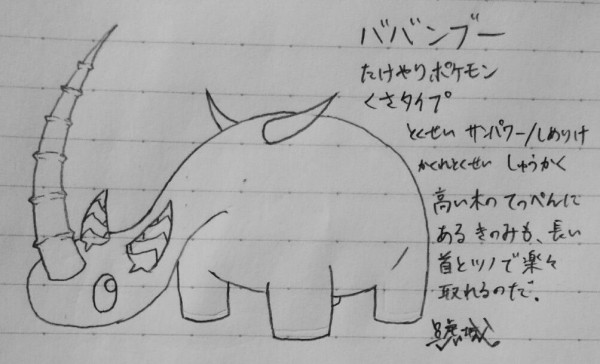 ババンブー
たけやりポケモン
くさタイプ
とくせい サンパワー/しめりけ
かくれとくせい しゅうかく
高い木のてっぺんに
あるきのみも、長い
首とツノで楽々
取れるのだ。